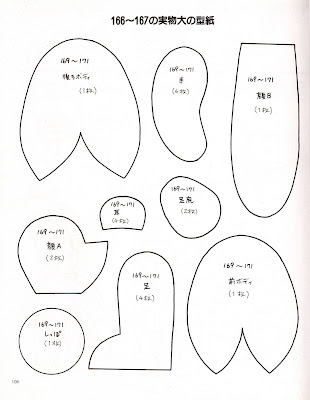 166〜167の実物大の型紙
169〜171
後ろボディ
(1枚)
169〜171
手
(4枚)
169〜171
顔B
(1枚)
169〜171
耳
(4枚)
169〜171
足底
(2枚)
169〜171
顔A
(2枚)
169〜171
足
(4枚)
169〜171
前ボディ
(1枚)
169〜171
しっぽ
(1枚)